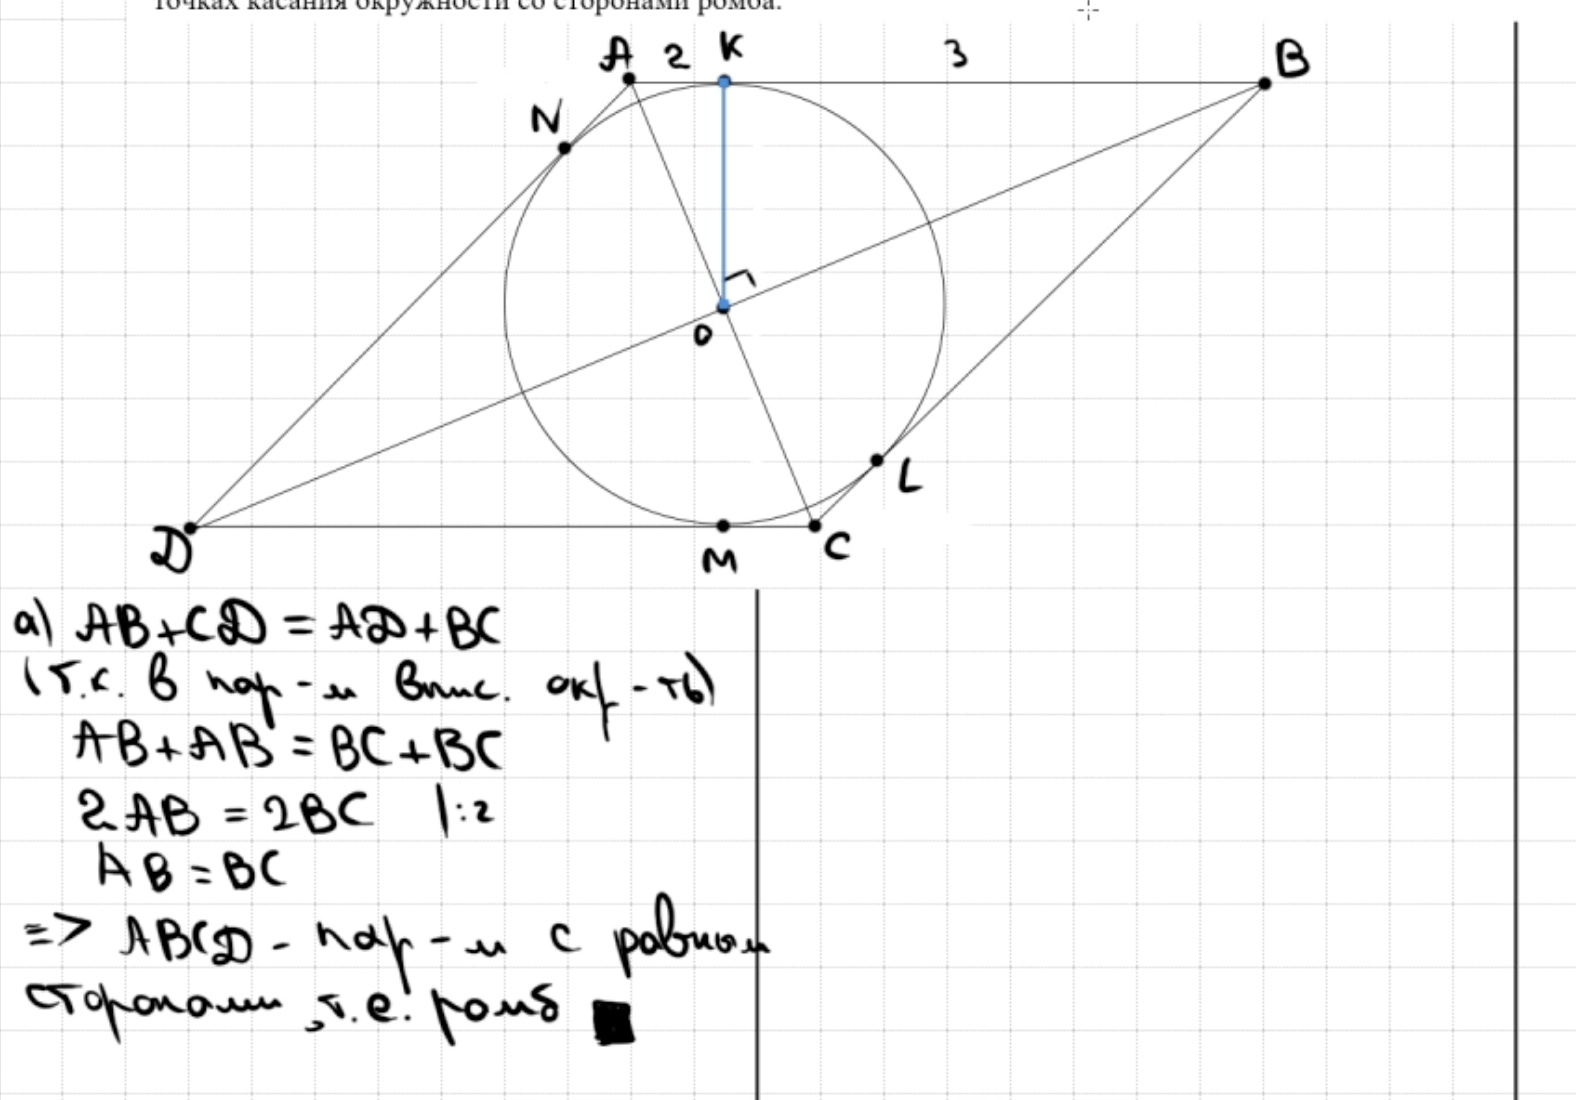 точках касания окружности со сторонами ромба.
A 2 K 3 B
N
O
L
D M C
а) AB+CD = AD+BC
(т.к. в пар-м впис. окр-ть)
AB+AB = BC+BC
2AB = 2BC |:2
AB = BC
=> ABCD - пар-м с равными
сторонами, т.е. ромб